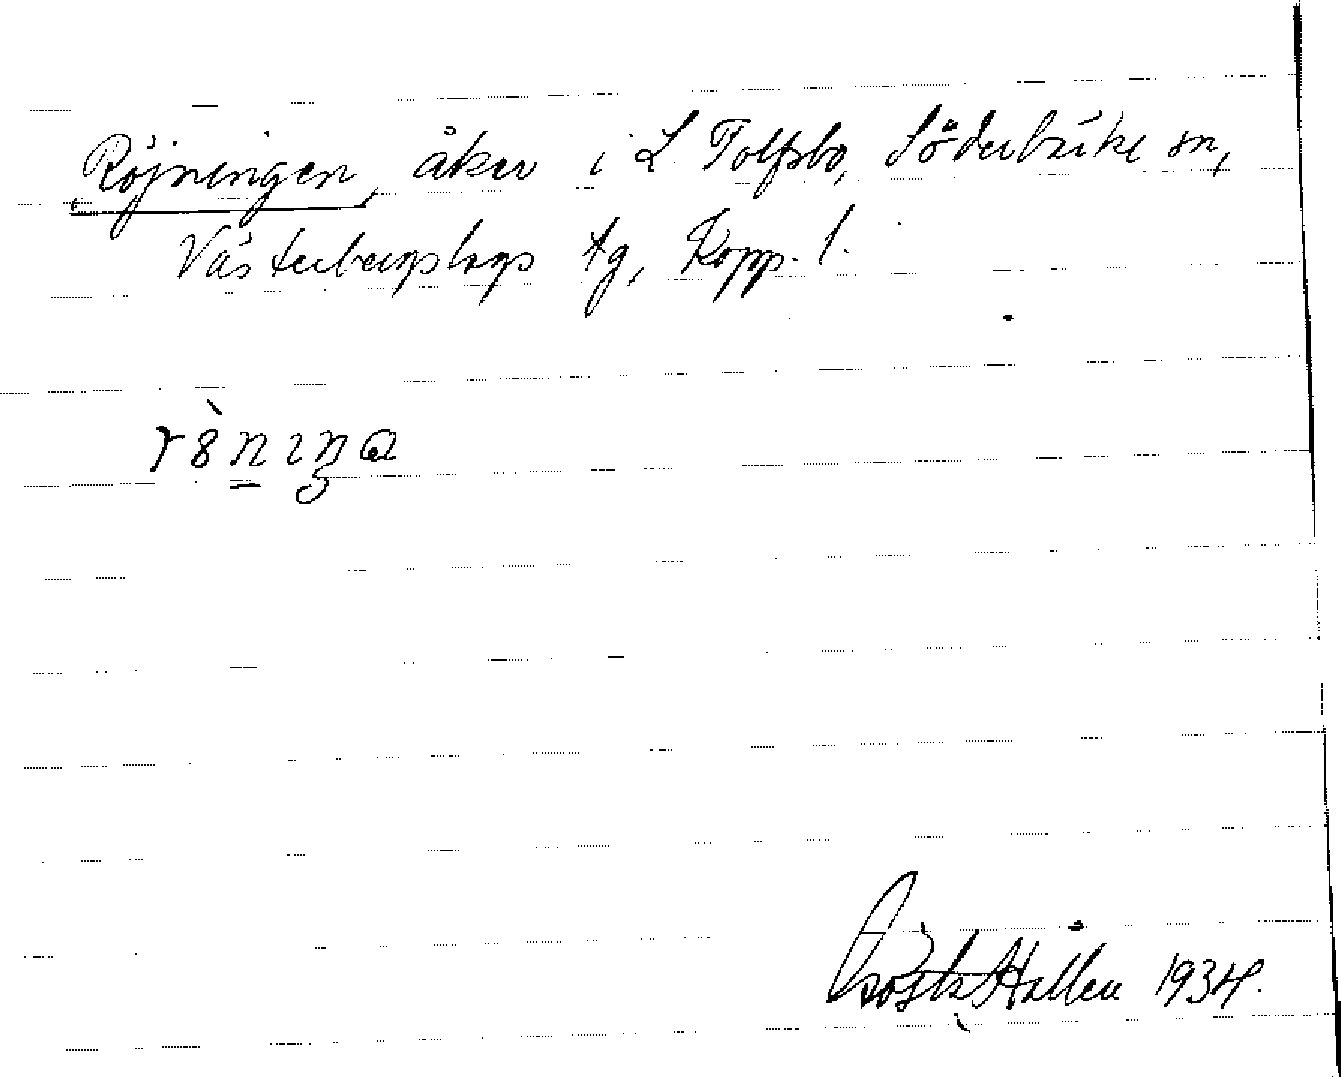 Röjningen, åker i L Tolfsbo, Söderbärke sn,
Västerbergslags tg, Kopp. l.
Gösta Hallén 1934.